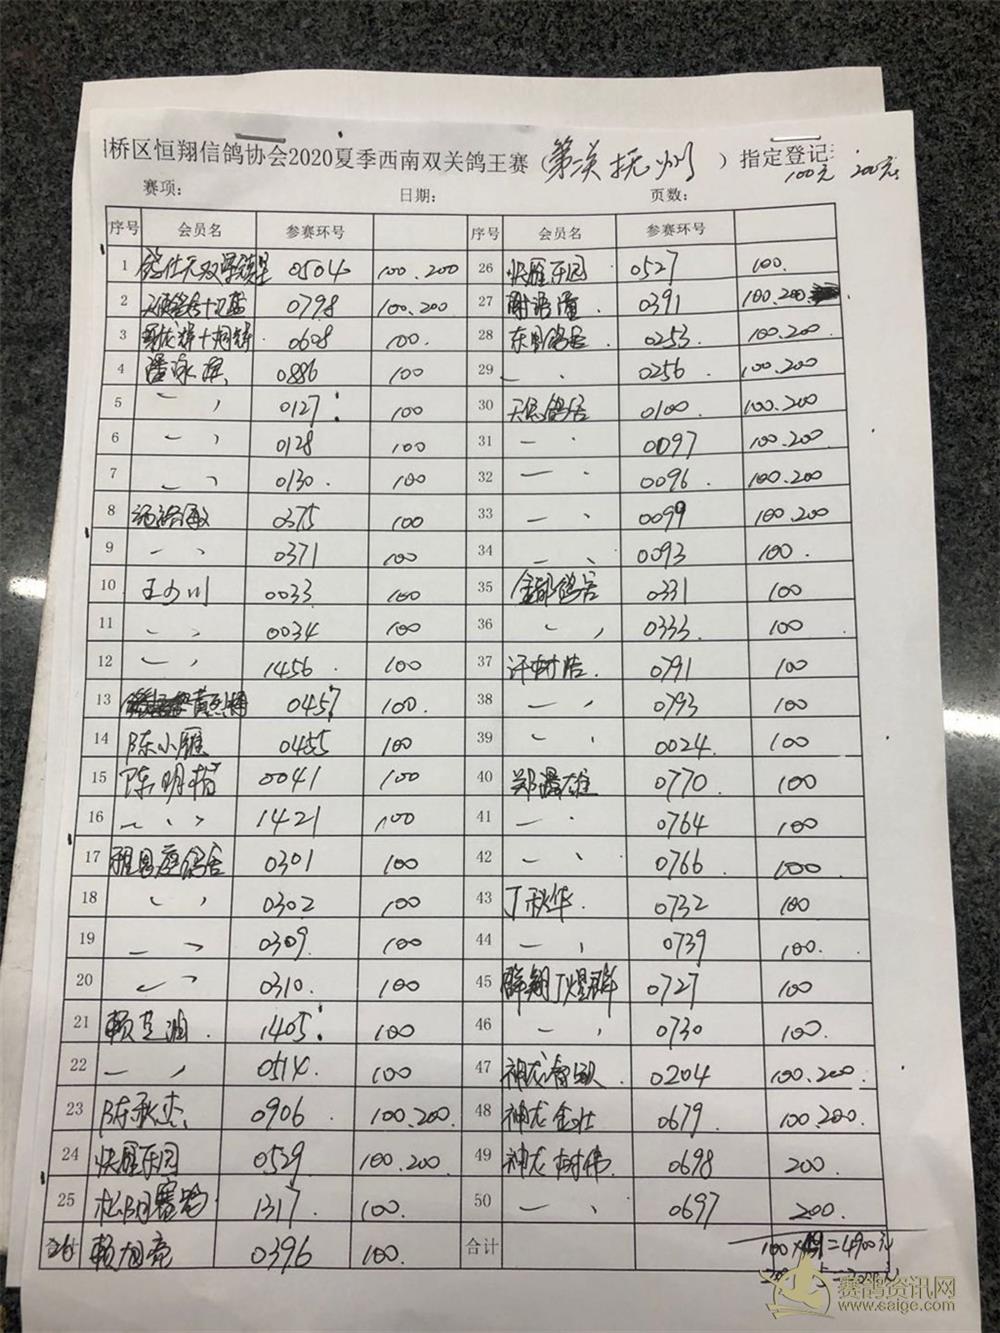 桥区恒翔信鸽协会2020夏季西南双关鸽王赛（第二关 抚州）指定登记
100元 200元
赛项： 日期： 页数：
序号 会员名 参赛环号 序号 会员名 参赛环号
1 0504 100.200 26 快雁乐园 0527 100.
2 0798 100.200 27 谢语潼 0391 100.200
3 0608 100. 28 鸽舍 0253 100.200
4 潘泳滨 0886 100 29 〃 0256 100.200
5 〃 0127 100 30 天恩鸽居 0100 100.200
6 〃 0128 100 31 〃 0097 100.200
7 〃 0130 100 32 〃 0096 100.200
8 0375 100 33 〃 0099 100.200
9 〃 0371 100 34 〃 0093 100.
10 王少川 0033 100 35 金都鸽居 0331 100
11 〃 0034 100 36 〃 0333 100
12 〃 1456 100 37 许树浩 0791 100
13 0457 100. 38 〃 0793 100
14 陈小雁 0455 100 39 〃 0024 100
15 陈明楷 0041 100 40 郑潮雄 0770 100
16 〃 1421 100 41 〃 0764 100
17 鸽舍 0301 100 42 〃 0766 100
18 〃 0302 100 43 丁秋华 0732 100
19 〃 0309 100 44 〃 0739 100.
20 〃 0310 100 45 翔丁煜群 0727 100
21 赖芝 1405 100 46 〃 0730 100.
22 〃 0514 100 47 神龙 0204 100.200
23 陈秋杰 0906 100.200 48 神龙金仕 0679 100.200
24 快雁乐园 0529 100.200 49 神龙树伟 0698 200.
25 松明赛鸽 1317 100. 50 〃 0697 200.
26 赖旭亮 0396 100. 合计 100×49=4900元
赛鸽资讯网
www.saige.com